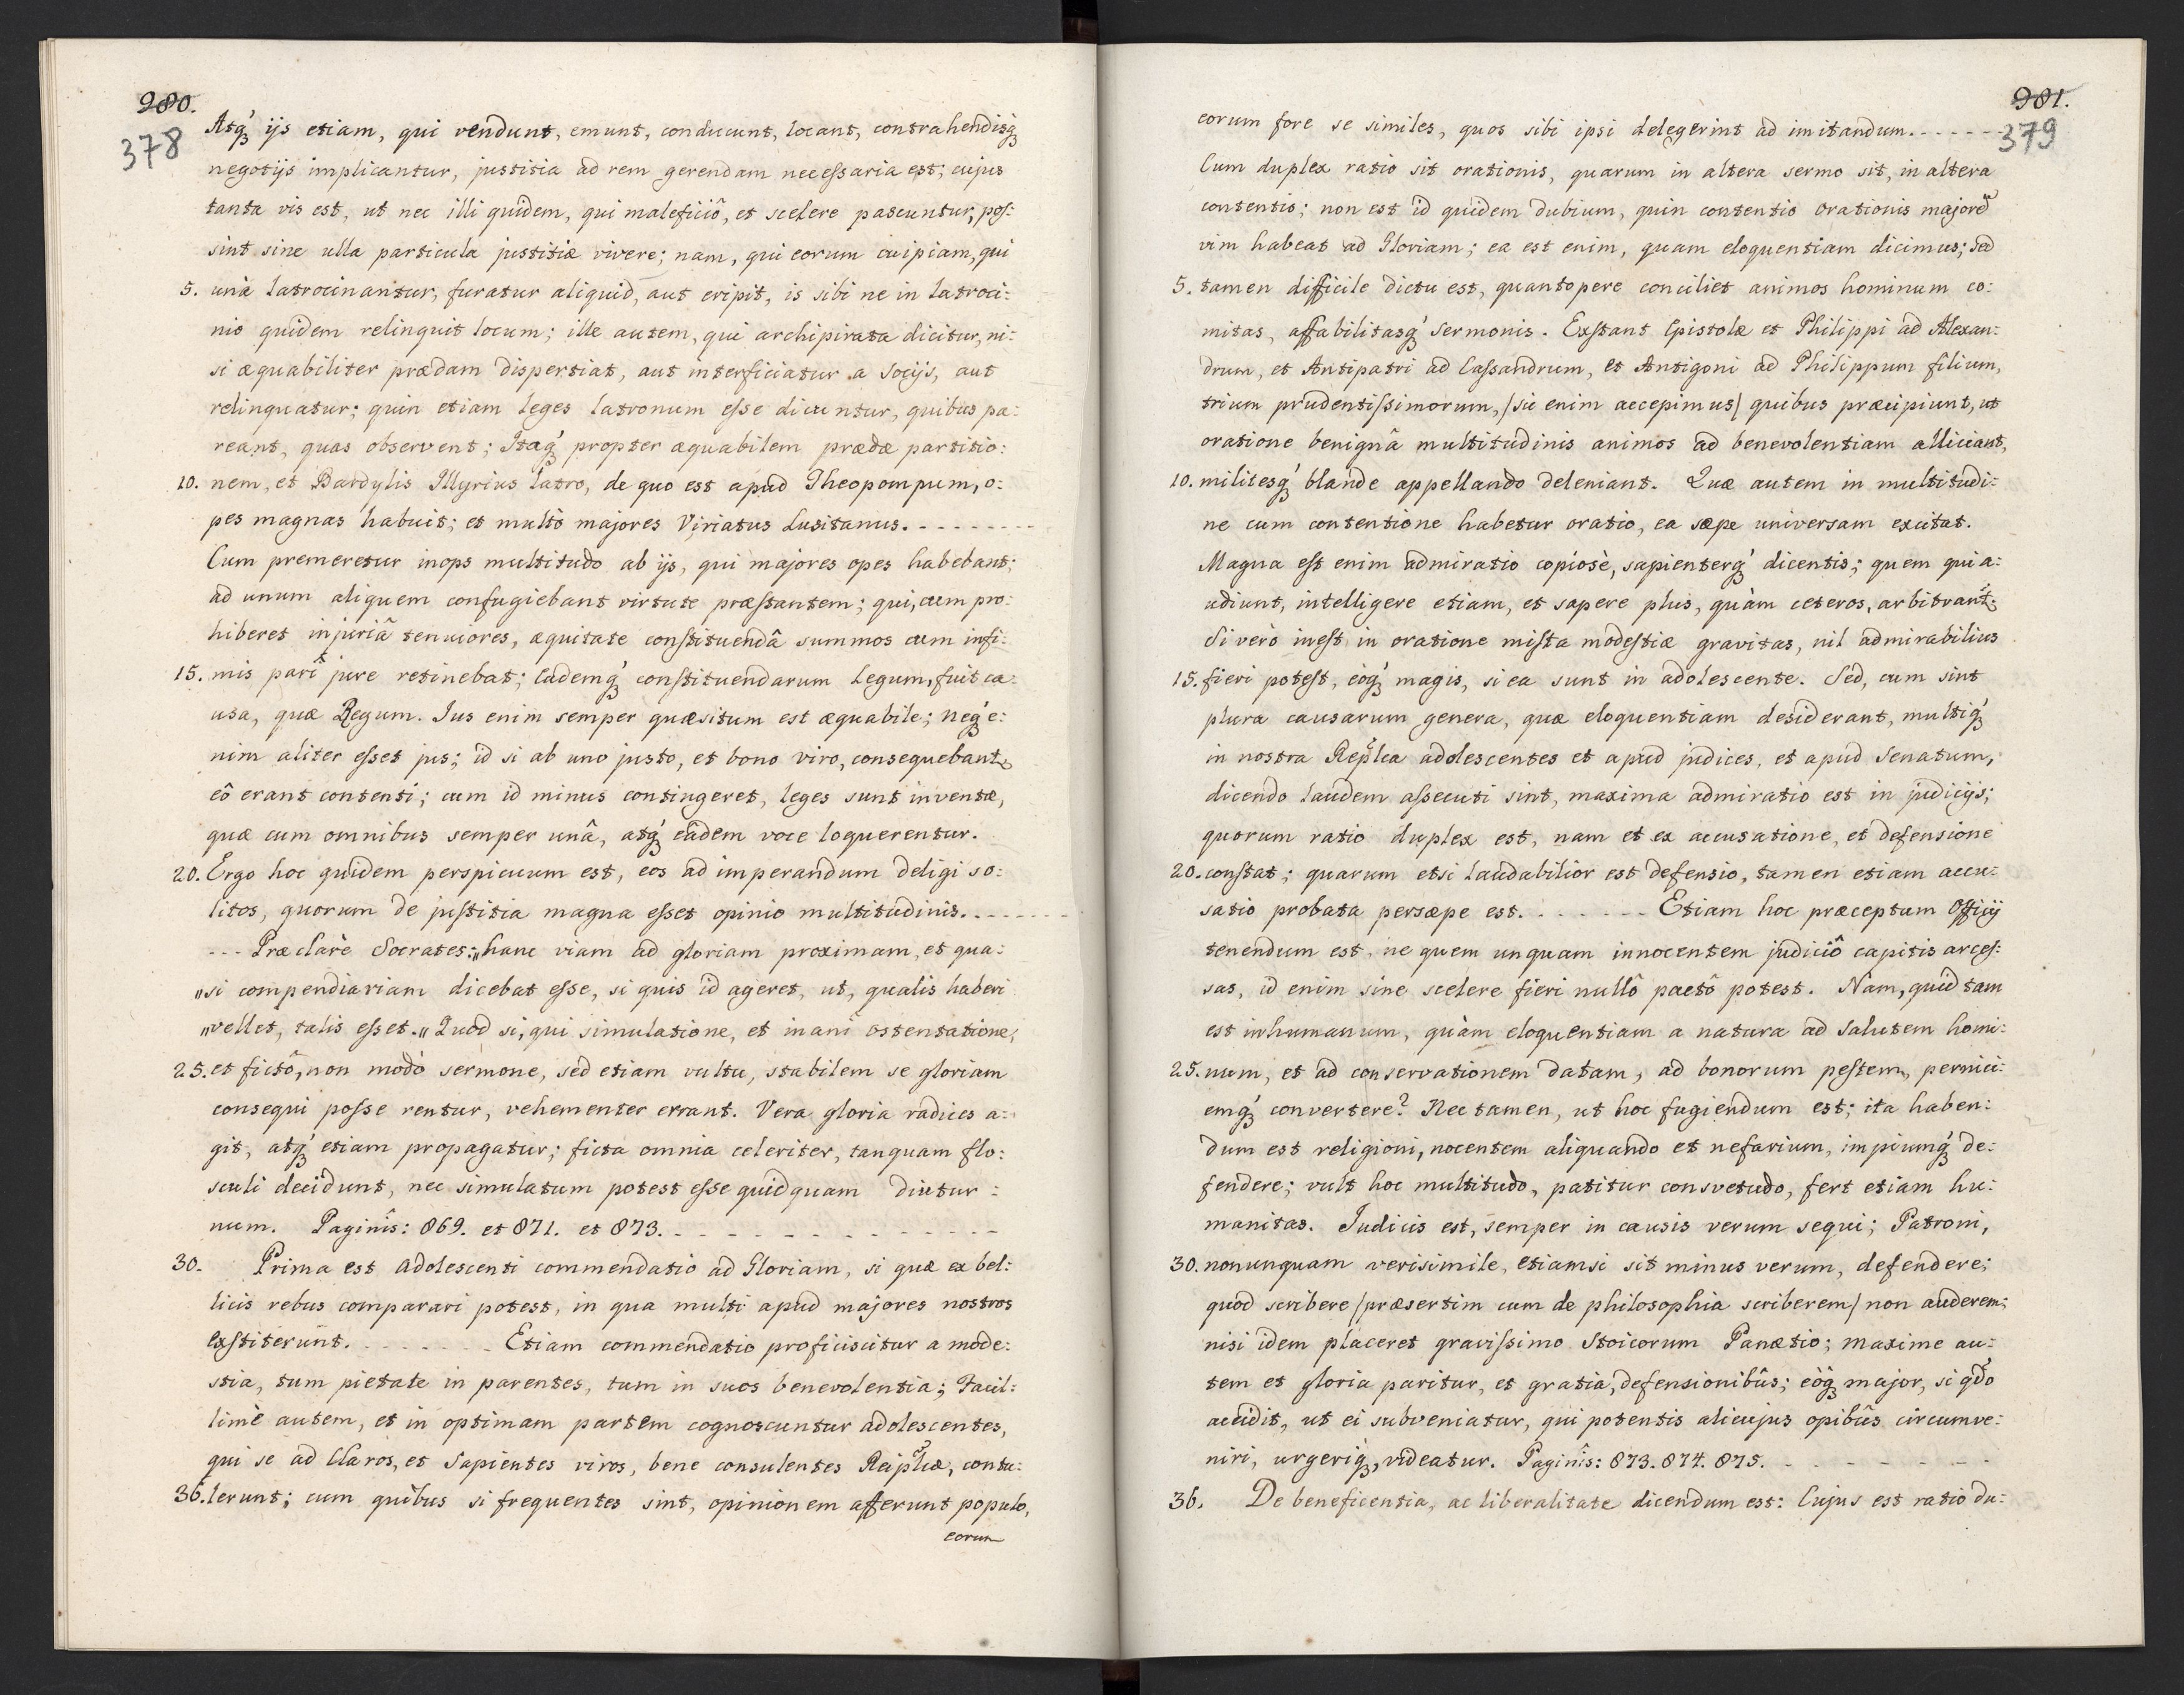 980.
378
Atq́ꝫ ijs etiam, qui vendunt, emunt, conducunt, locant, contrahendisq́ꝫ
negotijs implicantur, justitia ad rem gerendam neceſsaria est; cujus
tanta vis est, ut nec illi quidem, qui maleficiô, et scelere pascuntur, poſ:
sint sine ulla particula justitiæ vivere; nam, qui eorum cuipiam, qui
5. unà latrocinantur, furatur aliquid, aut eripit, is sibi ne in latroci:
nio quidem relinquit locum; ille autem, qui archipirata dicitur, ni:
si æquabiliter prædam dispertiat, aut interficiatur a Socijs, aut
relinquatur; quin etiam leges latronum eſse dicuntur, quibus pa:
reant, quas observent; Itaq́ꝫ propter æquabilem prædæ partitio:
10. nem, et Bardylis Illyrius latro, de quo est apud Theopompum, o:
pes magnas habuit; et multò majores Viriatus Lusitanus. - - - - - - - -
Cum premeretur inops multitudo ab ijs, qui majores opes habebant;
ad unum aliquem confugiebant virtute præſtantem; qui, cum pro:
hiberet injuriâ tenuiores, æquitate conſtituendâ summos cum infi:
15. mis parî jure retinebat; Eademq́ꝫ conſtituendarum Legum, fuit ca:
usa, quæ Regum. Jus enim semper quæsitum est æquabile; neq́ꝫ e:
nim aliter eſset jus; id si ab uno justo, et bono viro, consequebantꝛ,
eô erant contenti; cum id minus contingeret, leges sunt inventæ,
quæ cum omnibus semper unâ, atq́ꝫ eâdem voce loquerentur.
20. Ergo hoc quidem perspicuum est, eos ad imperandum deligi so:
litos, quorum de juſtitia magna eſset opinio multitudinis. - - - - - -
- - - Præclarè Socrates: „hanc viam ad gloriam proximam, et qua:
„si compendiariam dicebat eſse, si quis id ageret, ut, qualis haberi
„vellet, talis eſset.„ Quod si, qui simulatione, et inani ostentatione,
25. et fictô, non modò sermone, sed etiam vultu, stabilem se gloriam
consequi poſse rentur, vehementer errant. Vera gloria radices a:
git, atq́ꝫ etiam propagatur; ficta omnia celeriter, tanquam flo:
sculi decidunt, nec simulatum potest eſse quidquam diutur:
num. Paginîs: 869. et 871. et 873. - - - - - - - - - - - -
30. Prima est adolescenti commendatio ad Gloriam, si qua ex bel:
licis rebus comparari potest, in qua multi apud majores nostros
exſtiterunt. - - - - - - - Etiam commendatio proficiscitur a mode:
stia, tum pietate in parentes, tum in suos benevolentia; Facil:
limè autem, et in optimam partem cognoscuntur adolescentes,
qui se ad Claros, et Sapientes viros, bene consulentes Reiplicæ, contu:
36. lerunt; cum quibus si frequentes sint, opinionem afferunt populo,
eorum
981.
379
eorum fore se similes, quos sibi ipsi delegerint ad imitandum. - - - - - -
Cum duplex ratio sit orationis, quarum in altera sermo sit, in altera
contentio; non est id quidem dubium, quin contentio orationis majorẽ
vim habeat ad Gloriam; ea est enim, quam eloquentiam dicimus; Sed
5. tamen difficile dictu est, quantopere conciliet animos hominum co:
mitas, affabilitasq́ꝫ sermonis. Exſtant Epistolæ et Philippi ad Alexan:
drum, et Antipatri ad Caſsandrum, et Antigoni ad Philippum filium,
trium prudentiſsimorum, /sic enim accepimus/ quibus præcipiunt, ut
oratione benignâ multitudinis animos ad benevolentiam alliciant,
10. militesq́ꝫ blande appellando deleniant. Quæ autem in multitudi:
ne cum contentione habetur oratio, ea sæpe universam excitat.
Magna eſt enim admiratio copiosè, sapienterq́ꝫ dicentis; quem qui a:
udiunt, intelligere etiam, et sapere plus, quàm ceteros, arbitrantꝛ.
Si verò ineſt in oratione miſta modeſtiæ gravitas, nil admirabilius
15. fieri poteſt, eòq́ꝫ magis, si ea sunt in adolescente. Sed, cum sint
plura causarum genera, quæ eloquentiam desiderant, multiq́ꝫ
in nostra Replca adolescentes et apud judices, et apud Senatum,
dicendo laudem aſsecuti sint, maxima admiratio est in judicijs;
quorum ratio duplex est, nam et ex accusatione, et defensione
20. conſtat; quarum etsi laudabilior est defensio, tamen etiam accu:
satio probata persæpe est. - - - - - - - Etiam hoc præceptum Officij
tenendum est, ne quem unquam innocentem judiciô capitis arceſ:
sas, id enim sine scelere fieri nullô pactô potest. Nam, quid tam
est inhumanum, quàm eloquentiam a natura ad Salutem homi:
25. num, et ad conservationem datam, ad bonorum peſtem, pernici:
emq́ꝫ convertere? Nec tamen, ut hoc fugiendum est; ita haben:
dum est religioni, nocentem aliquando et nefarium, impiumq́ꝫ de:
fendere; vult hoc multitudo, patitur consvetudo, fert etiam hu:
manitas. Judicis est, semper in causis verum sequi; Patroni,
30. nonunquam verisimile, etiamsi sit minus verum, defendere;
quod scribere /præsertim cum de philosophia scriberem/ non auderem;
nisi idem placeret graviſsimo Stoicorum Panætio; maxime au:
tem et gloria paritur, et gratia, defensionibûs; eòq́ꝫ major, si qdo
accidit, ut ei subveniatur, qui potentis alicujus opibûs circumve:
niri, urgeriq́ꝫ, videatur. Paginîs: 873. 874. 875. - - - - - - -
36. De beneficentia, ac liberalitate dicendum est: Cujus est ratio du: